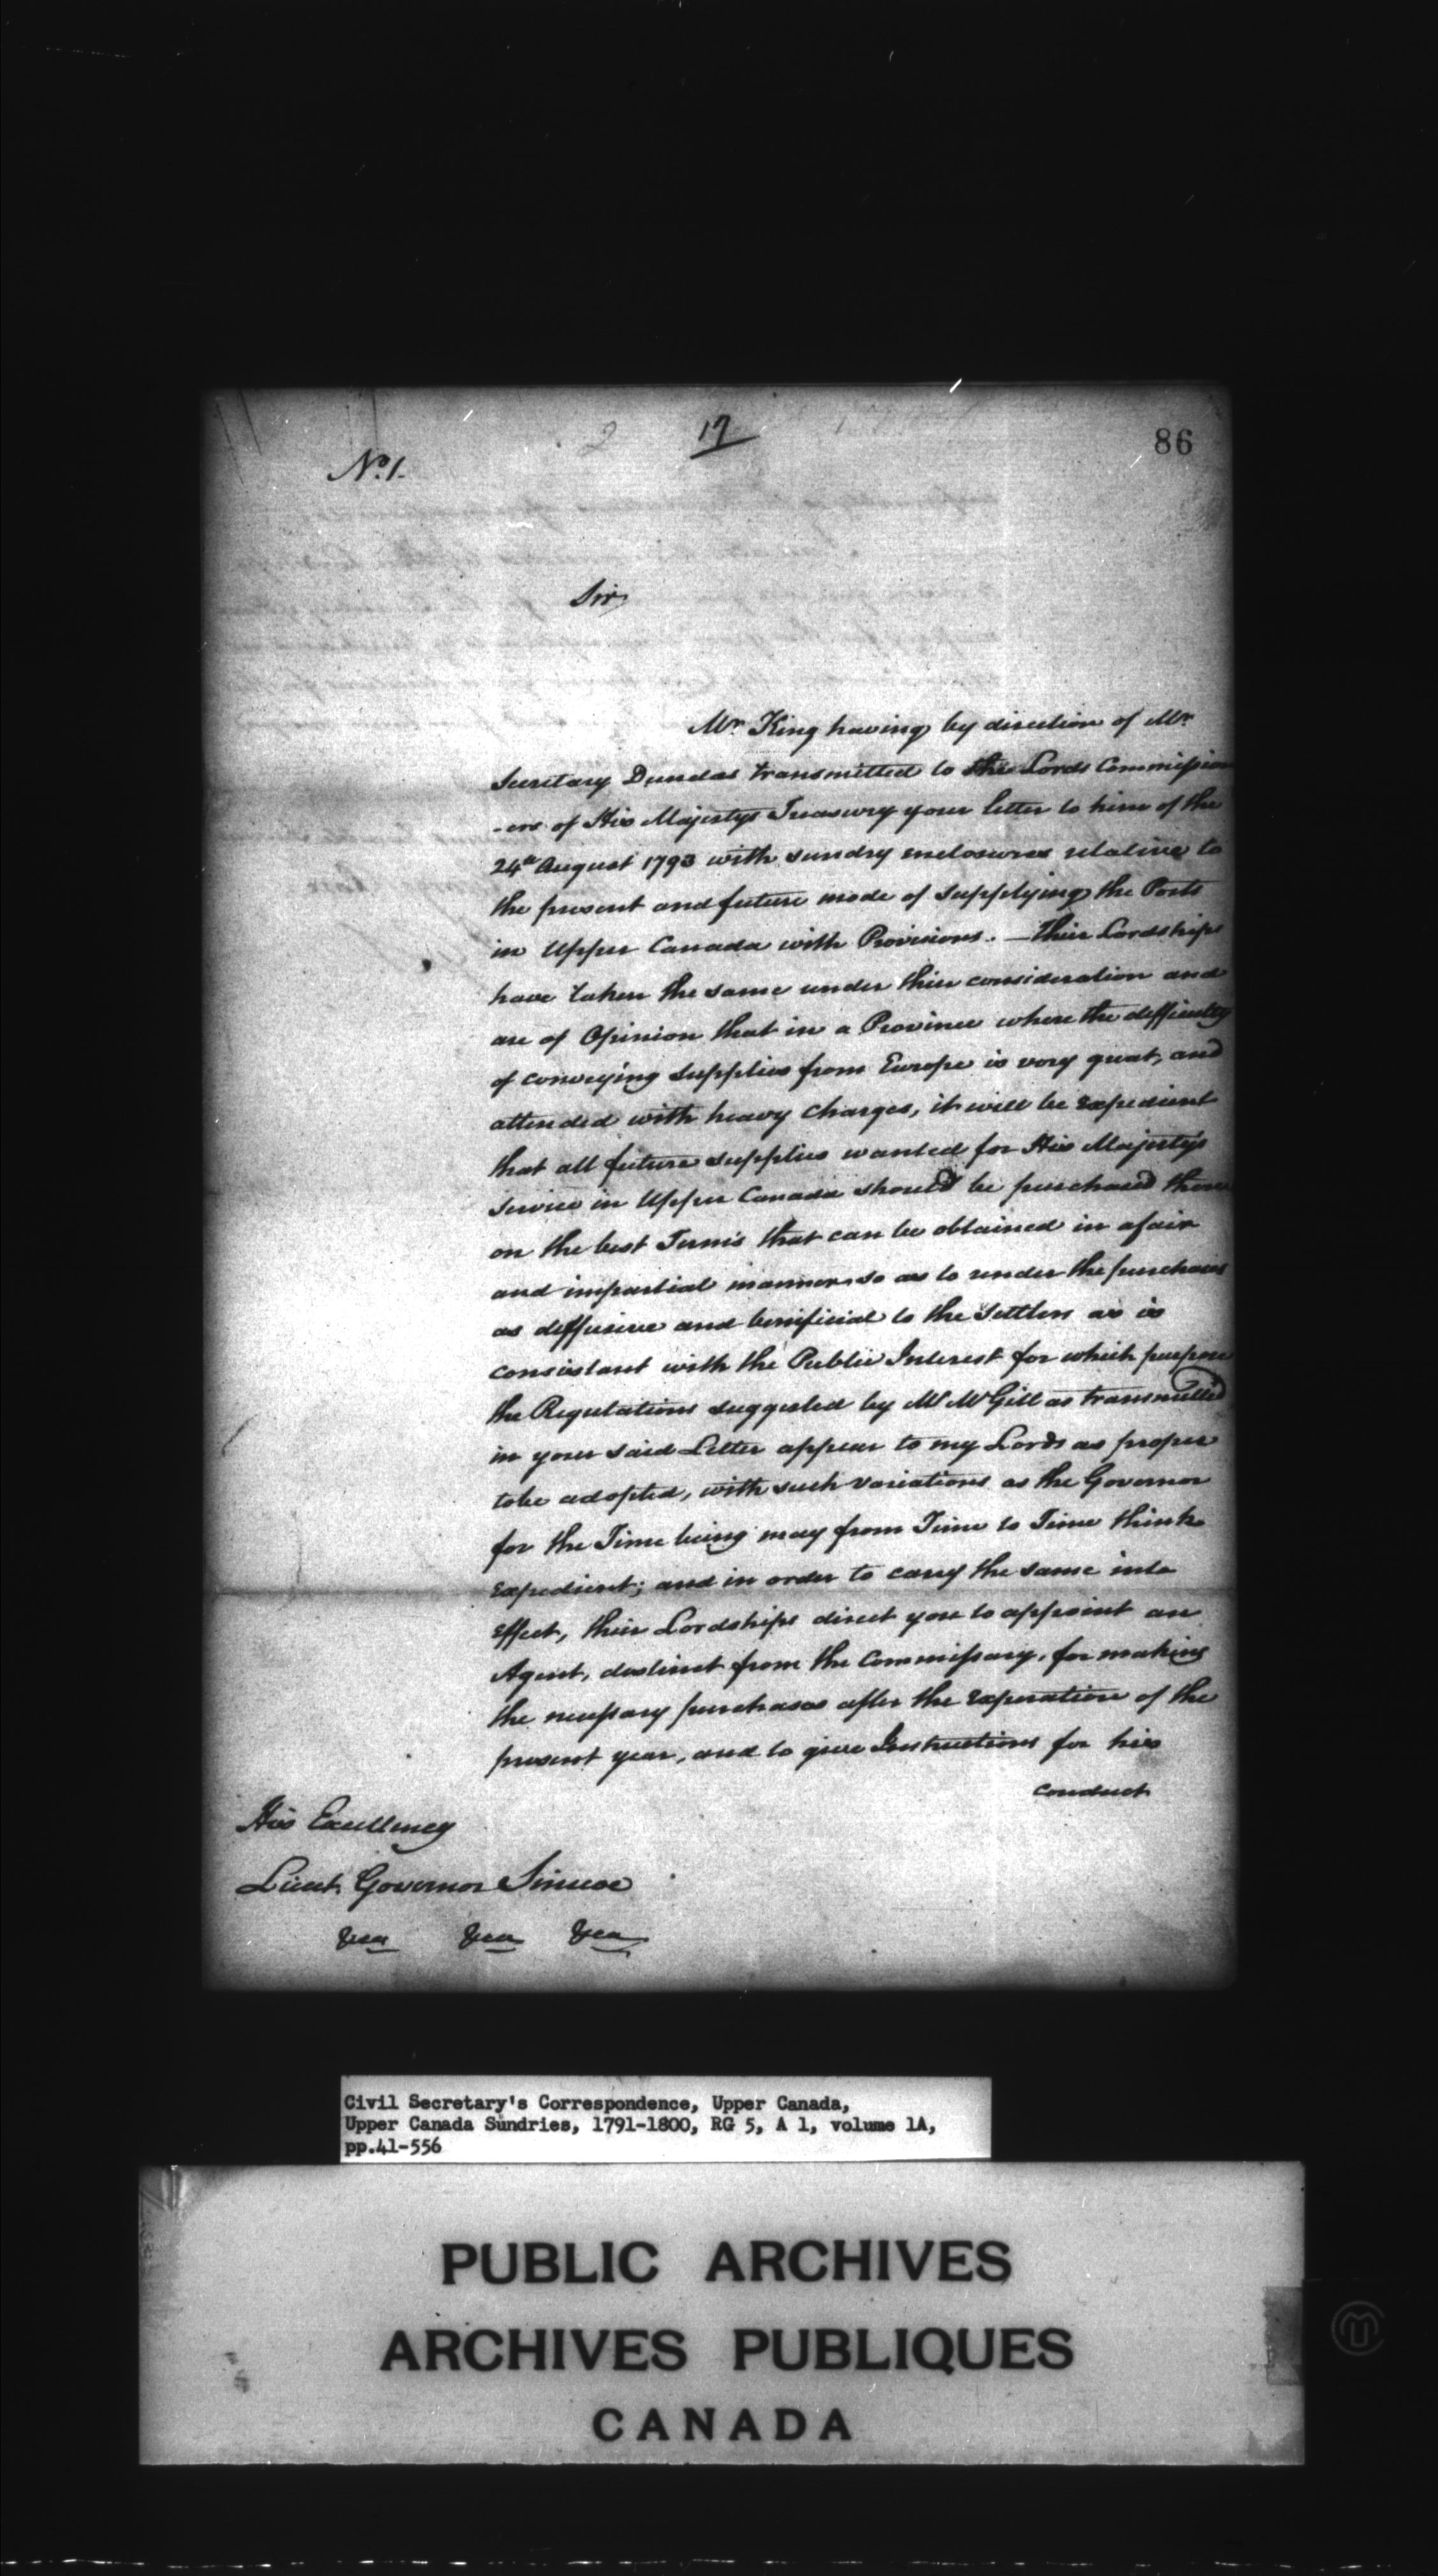 17
86
No. 1.
Sir,
Mr. King having by direction of Mr.
Secretary Dundas transmitted to the Lords Commission
-ers of His Majestys Treasury your letter to him of the
24th August 1793 with sundry enclosures relative to
the present and future mode of supplying the Posts
in Upper Canada with Provisions. — their Lordships
have taken the same under their consideration and
are of Opinion that in a Province where the difficulty
of conveying supplies from Europe is very great, and
attended with heavy Charges, it will be expedient
that all future supplies wanted for His Majesty's
Service in Upper Canada should be purchased there
on the best Terms that can be obtained in a fair
and impartial manner so as to render the purchases
as diffusive and beneficial to the Settlers as is
consistant with the Public Interest for which purpose
the Regulations suggested by Mr McGill as transmitted
in your said Letter appear to my Lords as proper
to be adopted, with such variations as the Governor
for the Time being may from Time to Time think
expedient; and in order to carry the same into
effect, their Lordships direct you to appoint an
Agent, distinct from the Commissary, for making
the necessary purchases after the Experation of the
present year, and to give Instructions for his
conduct
His Excellency
Lieut. Governor Simcoe
&ca &ca &ca
Civil Secretary's Correspondence, Upper Canada,
Upper Canada Sundries, 1791-1800, RG 5, A 1, volume 1A,
pp.41-556
PUBLIC ARCHIVES
ARCHIVES PUBLIQUES
CANADA